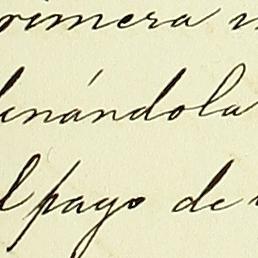 rimera
enándola
l pago de